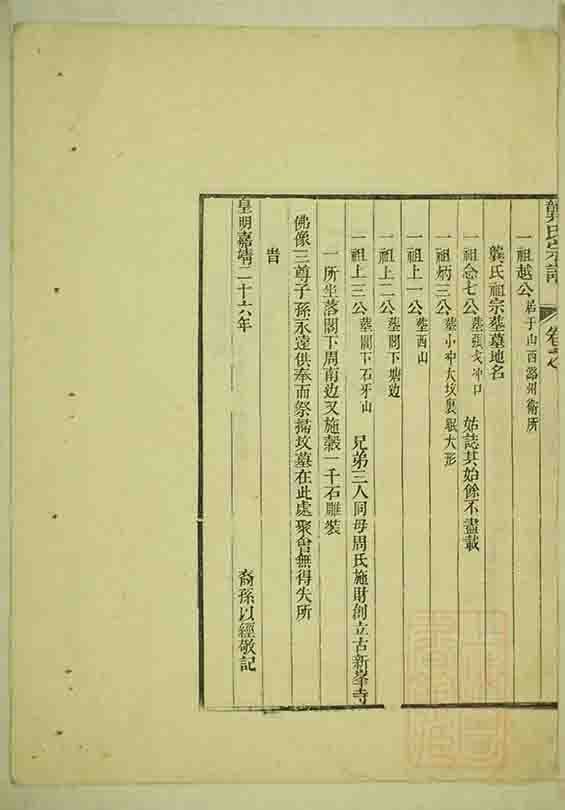 龔氏宗譜 卷之
一祖越公居于山西潞州衛所
龔氏祖宗墓墓地名
一祖念七公墓張戈冲口 姑誌其始餘不盡載
一祖炳三公墓小冲大坟裏眠犬形
一祖上一公墓西山
一祖上二公墓閣下塘边
一祖上三公墓閣下石牙山 兄弟三人同母周氏施財創立古新峯寺
一所坐落閣下周南边又施穀一千石雕裝
佛像三尊子孫永遠供奉而祭掃坟墓在此處聚會無得失所
旹
皇明嘉靖二十六年 裔孫以經敬記